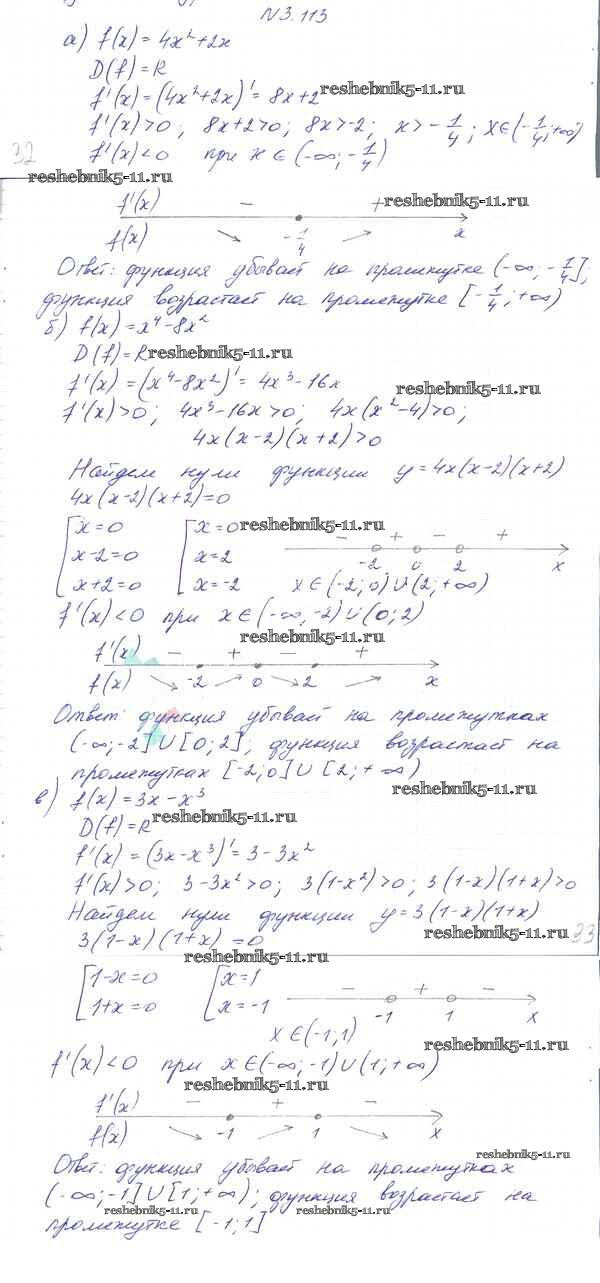 N3.113
а) f(x) = 4x²+2x
D(f) = R
f'(x) = (4x²+2x)' = 8x+2 reshebnik5-11.ru
f'(x)>0; 8x+2>0; 8x>-2; x>-1/4; x∈(-1/4;+∞)
32 f'(x)<0 при x∈(-∞;-1/4)
reshebnik5-11.ru
f'(x) - + reshebnik5-11.ru
f(x) ↘ -1/4 ↗ x
Ответ: функция убывает на промежутке (-∞;-1/4];
функция возрастает на промежутке [-1/4;+∞)
б) f(x) = x⁴-8x²
D(f) = R reshebnik5-11.ru
f'(x) = (x⁴-8x²)' = 4x³-16x reshebnik5-11.ru
f'(x)>0; 4x³-16x>0; 4x(x²-4)>0;
4x(x-2)(x+2)>0
Найдем нули функции y=4x(x-2)(x+2)
4x(x-2)(x+2)=0
[x=0 [x=0 reshebnik5-11.ru
x-2=0 x=2 - + - +
-2 0 2 x
x+2=0 x=-2 x∈(-2;0)∪(2;+∞)
f'(x)<0 при x∈(-∞;-2)∪(0;2)
reshebnik5-11.ru
f'(x) - + - +
f(x) ↘ -2 ↗ 0 ↘ 2 ↗ x
Ответ: функция убывает на промежутках
(-∞;-2]∪[0;2], функция возрастает на
промежутках [-2;0]∪[2;+∞)
reshebnik5-11.ru
в) f(x) = 3x-x³
D(f) = R reshebnik5-11.ru
f'(x) = (3x-x³)' = 3-3x²
f'(x)>0; 3-3x²>0; 3(1-x²)>0; 3(1-x)(1+x)>0
Найдем нули функции y=3(1-x)(1+x)
reshebnik5-11.ru 33
3(1-x)(1+x)=0
reshebnik5-11.ru
[1-x=0 [x=1 - + -
1+x=0 x=-1 -1 1 x
x∈(-1;1)
reshebnik5-11.ru
f'(x)<0 при x∈(-∞;-1)∪(1;+∞)
reshebnik5-11.ru
f'(x) - + -
f(x) ↘ -1 ↗ 1 ↘ x
reshebnik5-11.ru
Ответ: функция убывает на промежутках
(-∞;-1]∪[1;+∞); функция возрастает на
reshebnik5-11.ru reshebnik5-11.ru
промежутке [-1;1]